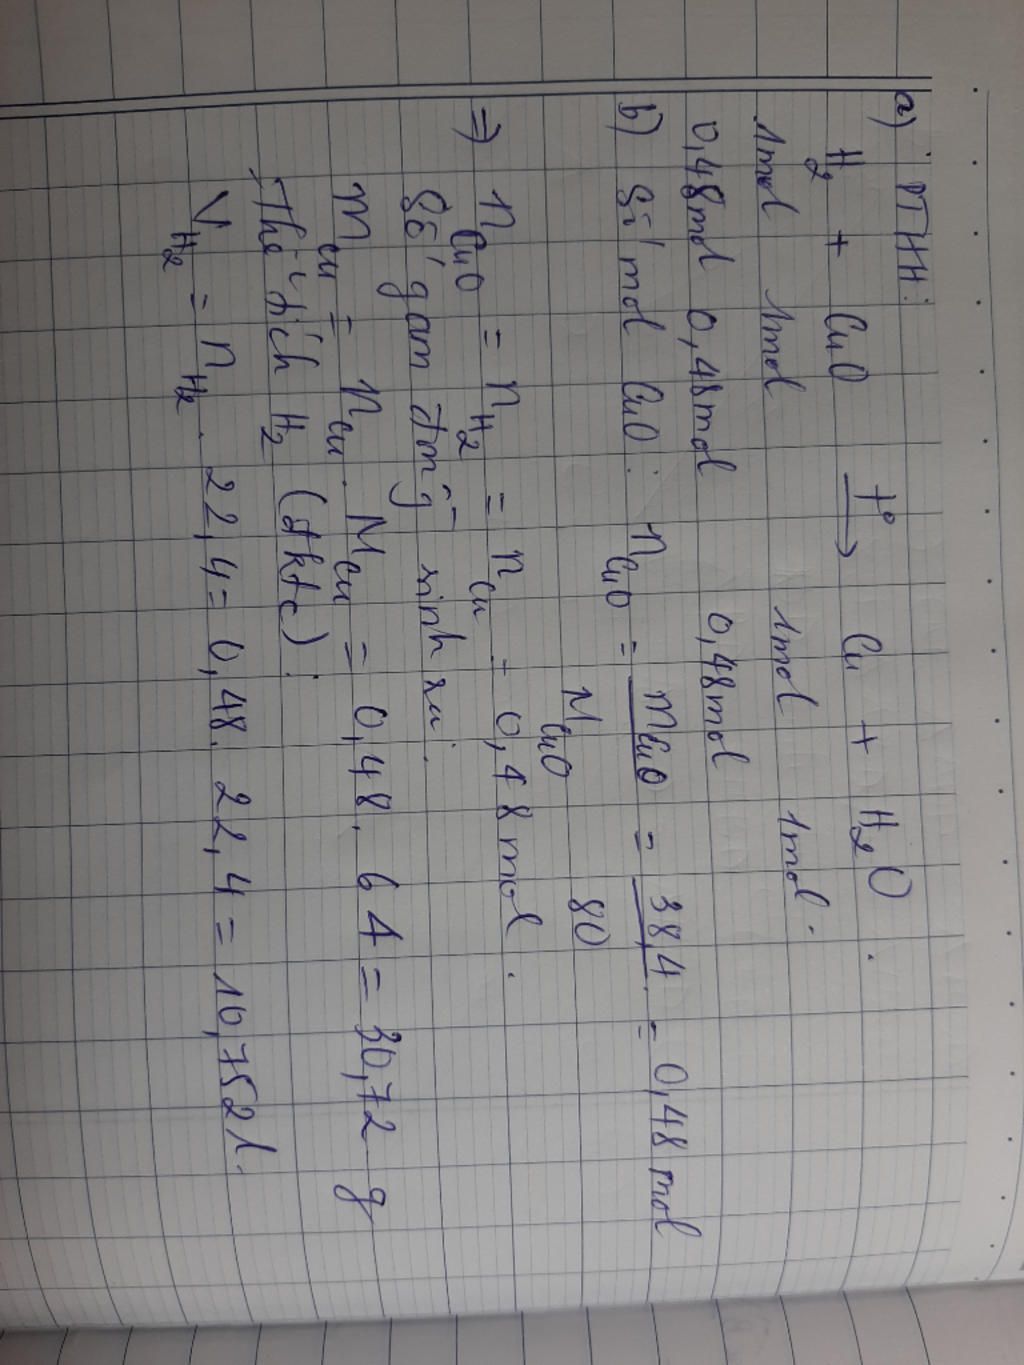 a) PTHH:
H2 + CuO t° → Cu + H2O.
1mol 1mol 1mol 1mol.
0,48mol 0,48mol 0,48mol
b) Số mol CuO: nCuO = mCuO / MCuO = 38,4 / 80 = 0,48 mol
=> nCuO = nH2 = nCu = 0,48 mol.
Số gam đồng sinh ra:
mCu = nCu . MCu = 0,48 . 64 = 30,72 g
Thể tích H2 (đktc):
VH2 = nH2 . 22,4 = 0,48 . 22,4 = 10,752 l.